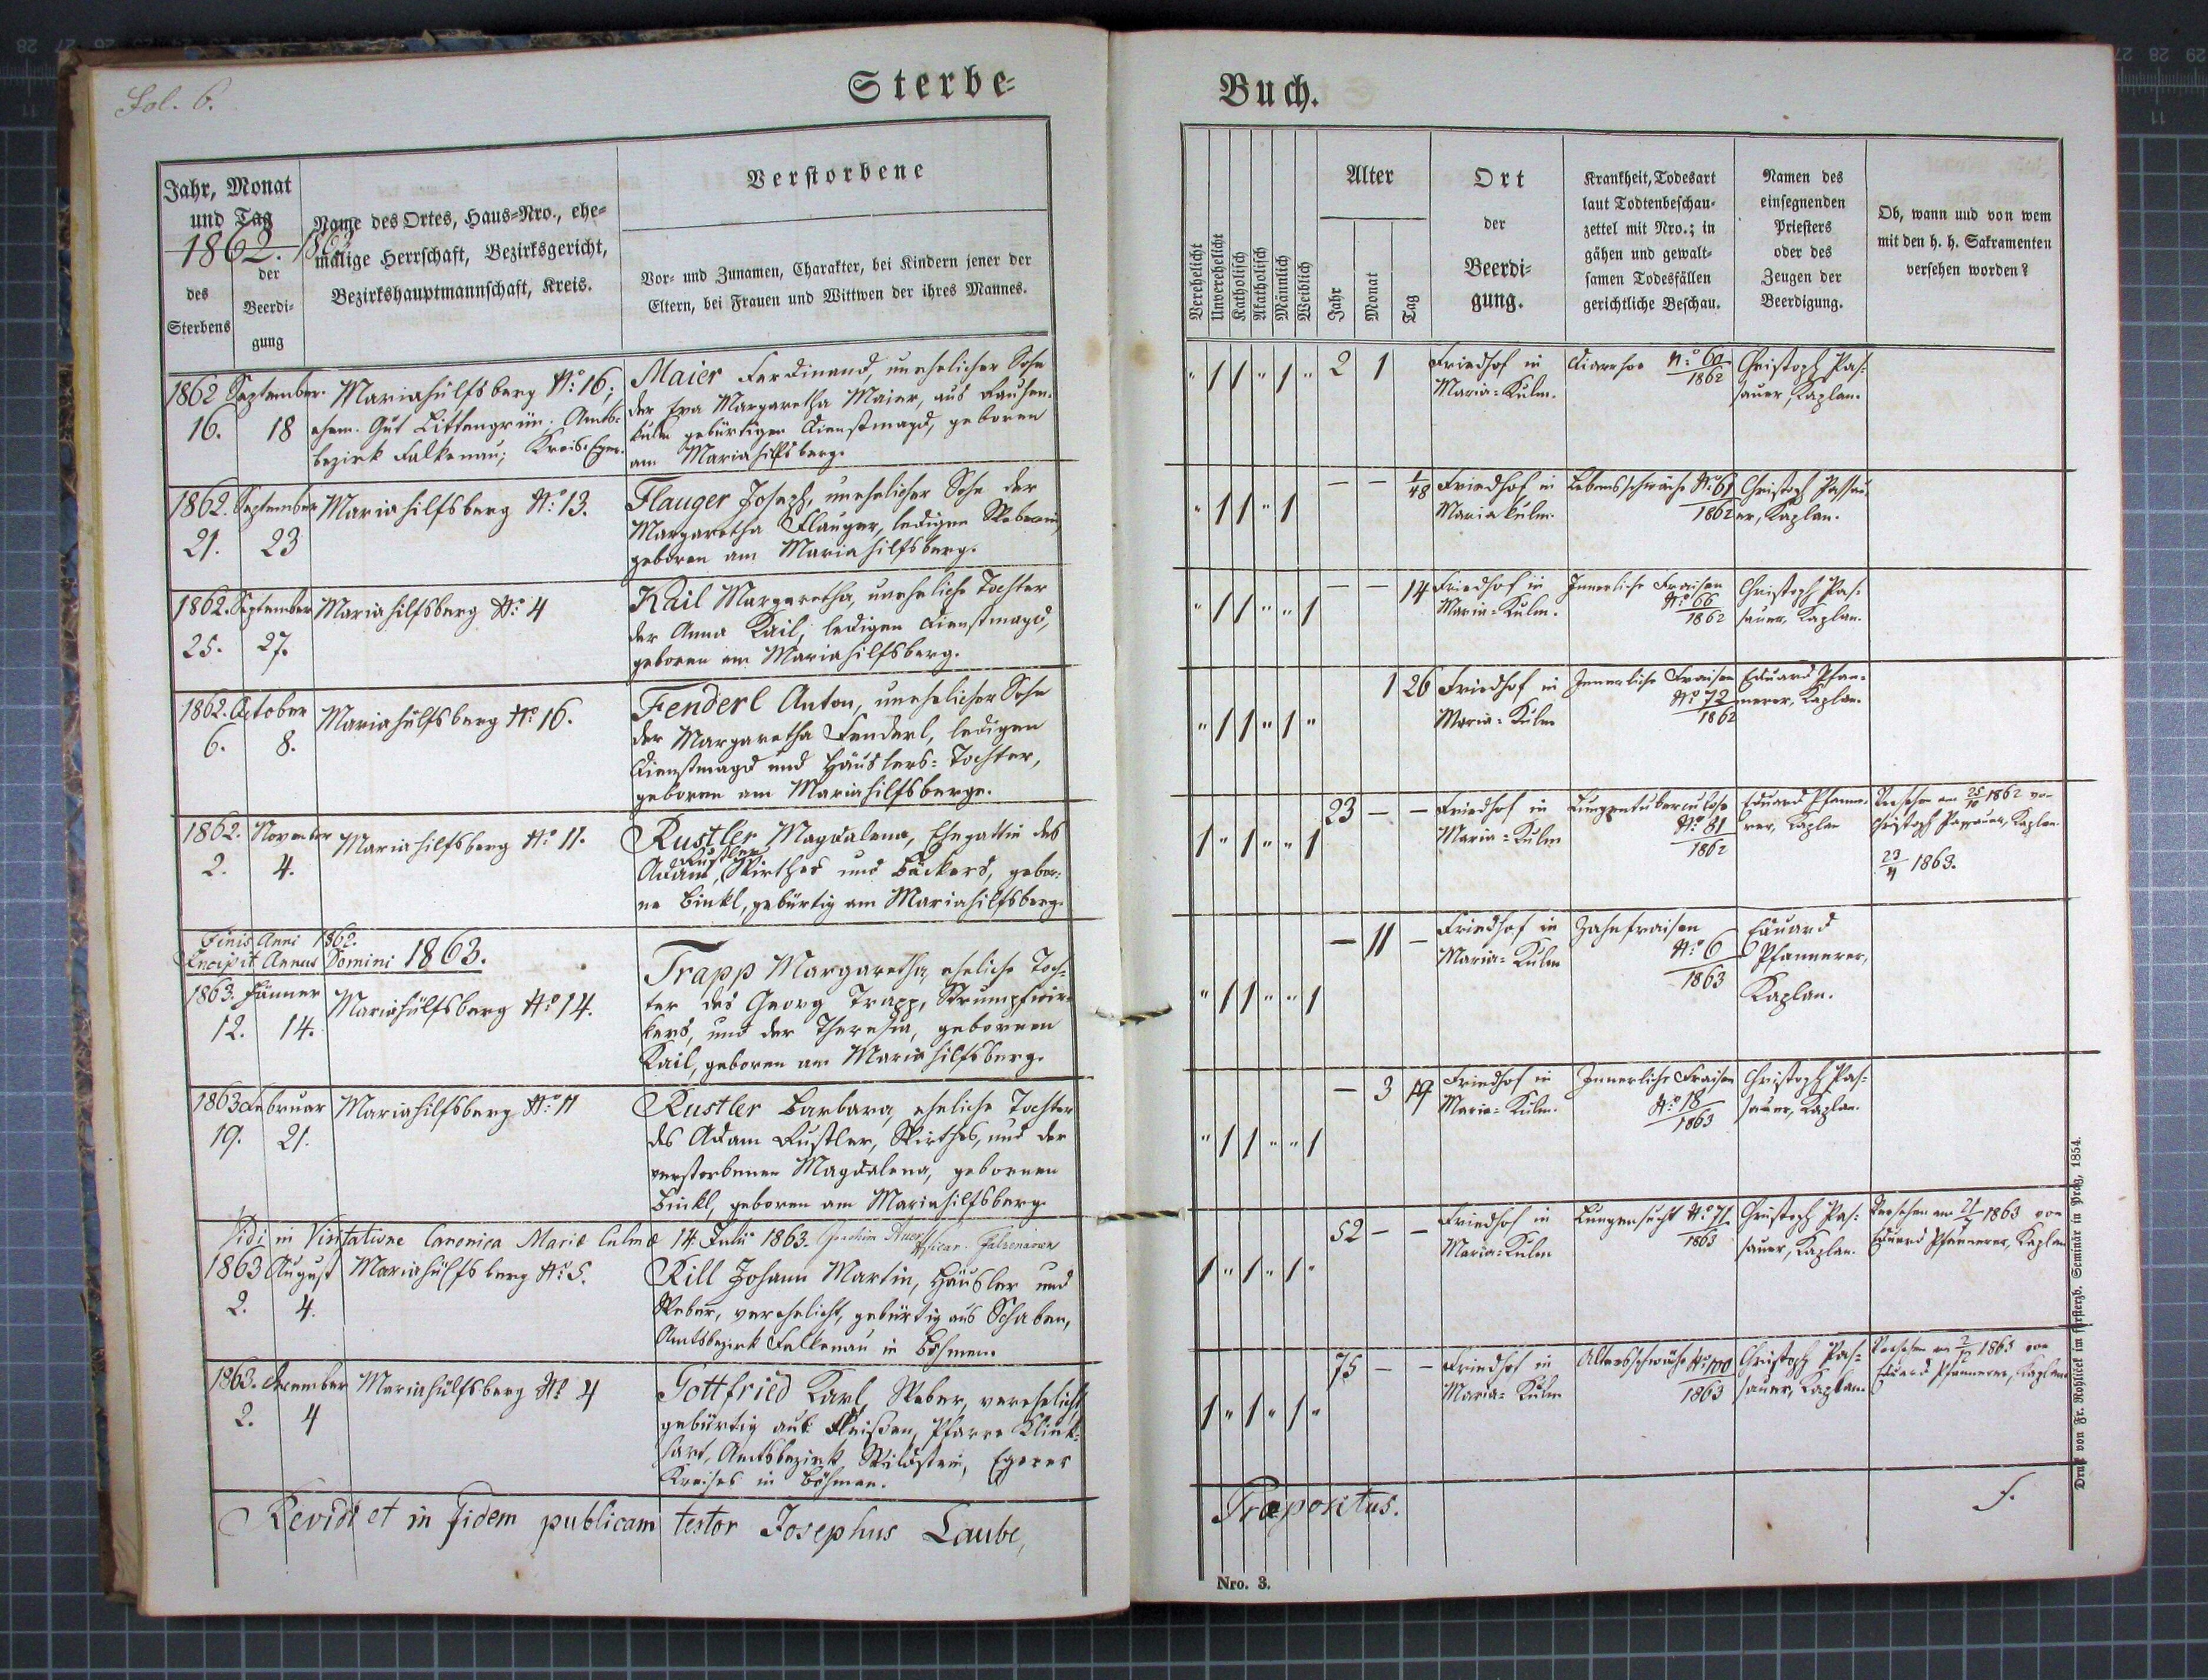 Fol. 6.
Sterbe-
Buch.
Jahr, Monat
und Tag
1862. 1863
des
Sterbens
der
Beerdi-
gung
Name des Ortes, Haus-Nro., ehe-
malige Herrschaft, Bezirksgericht,
Bezirkshauptmannschaft, Kreis.
Verstorbene
Vor- und Zunamen, Charakter, bei Kindern jener der
Eltern, bei Frauen und Wittwen der ihres Mannes.
Verehelicht
Unverehelicht
Katholisch
Akatholisch
Männlich
Weiblich
Alter
Jahr
Monat
Tag
Ort
der
Beerdi-
gung.
Krankheit, Todesart
laut Todtenbeschau-
zettel mit Nro.; in
gähen und gewalt-
samen Todesfällen
gerichtliche Beschau.
Namen des
einsegnenden
Priesters
oder des
Zeugen der
Beerdigung.
Ob, wann und von wem
mit den h. h. Sakramenten
versehen worden?
1862 September.
16. 18
Mariahülfsberg No: 16;
ehem. Gut Littengrün. Amts-
bezirk Falkenau; Kreis Eger.
Maier Ferdinand, unehelicher Sohn
der Eva Margaretha Maier, aus
gebürtigen Dienstmagd, geboren
am Mariahilfsberg.
" 1 1 " 1 " 2 1
Friedhof in
Maria-Kulm.
Diarrhoe No: 60
1862
Christoph Pas-
sauer, Kaplan.
1862. September
21. 23
Mariahilfsberg No: 13.
Flauger Joseph, unehelicher Sohn der
Margaretha Flauger, ledigen Weberin,
geboren am Mariahilfsberg.
" 1 1 " 1 — — 1/48
Friedhof in
Maria Kulm.
Lebensschwäche No: 61
1862
Christoph Passau-
er, Kaplan.
1862. September
25. 27.
Mariahilfsberg No: 4
Kail Margaretha, uneheliche Tochter
der Anna Kail, ledigen Dienstmagd,
geboren am Mariahilfsberg.
" 1 1 " " 1 — — 14
Friedhof in
Maria-Kulm.
Innerliche Fraisen
No: 66
1862
Christoph Pas-
sauer, Kaplan.
1862. October
6. 8.
Mariahülfsberg No: 16.
Fenderl Anton, unehelicher Sohn
der Margaretha Fenderl, ledigen
Dienstmagd und Häuslers-Tochter,
geboren am Mariahilfsberge.
" 1 1 " 1 " 1 26
Friedhof in
Maria-Kulm
Innerliche Fraisen
No: 72
1862
Eduard Pfan-
nerer, Kaplan.
1862. November
2. 4.
Mariahilfsberg No: 11.
Rustler Magdalena, Ehegattin des
Adam Rustler, Wirthes und Bäckers, gebor-
ne Binkl, gebürtig am Mariahilfsberg.
1 " 1 " " 1 23 — —
Friedhof in
Maria-Kulm
Lungentuberculose
No: 81
1862
Eduard Pfanne-
rer, Kaplan
Versehen am 25/10 1862 von
Christoph Passauer, Kaplan.
23/4 1863.
Finis Anni 1862.
Incipit Annus Domini 1863.
1863. Jänner
12. 14.
Mariahülfsberg No: 14.
Trapp Margaretha, eheliche Toch-
ter des Georg Trapp, Strumpfwir-
kers, und der Theresia, gebornen
Kail, geboren am Mariahilfsberg.
" 1 1 " " 1 — 11 —
Friedhof in
Maria-Kulm
Zahnfraisen
No: 6
1863
Eduard
Pfannerer,
Kaplan.
1863 Februar
19. 21.
Mariahilfsberg No: 11
Rustler Barbara, eheliche Tochter
des Adam Rustler, Wirthes, und der
verstorbenen Magdalena, gebornen
Binkl, geboren am Mariahilfsberg.
" 1 1 " " 1 — 3 19
Friedhof in
Maria-Kulm.
Innerliche Fraisen
No: 18
1863
Christoph Pas-
sauer, Kaplan.
Vidi in Visitatione Canonica Mariæ Culmæ 14. Julii 1863. Joachim
1863 August
2. 4.
Mariahülfsberg No: 5.
Rill Johann Martin, Häusler und
Weber, verehelicht, gebürtig aus Schaben,
Amtsbezirk Falkenau in Böhmen.
1 " 1 " 1 " 52 — —
Friedhof in
Maria-Kulm
Lungensucht No: 71
1863
Christoph Pas-
sauer, Kaplan.
Versehen am 21/7 1863 von
Eduard Pfannerer, Kaplan
1863. December
2. 4
Mariahülfsberg No: 4
Gottfried Karl, Weber, verehelicht,
gebürtig aus Fleißen, Pfarre Klink-
hart, Amtsbezirk Wildstein, Egerer
Kreises in Böhmen.
1 " 1 " 1 " 75 — —
Friedhof in
Maria-Kulm
Altersschwäche No: 100
1863
Christoph Pas-
sauer, Kaplan.
Versehen am 2/12 1863 von
Eduard Pfannerer, Kaplan
Revidi et in fidem publicam testor Josephus Laube,
Præpositus.
Nro. 3.
Druck von Fr. Rohlicek im fürsterzb. Seminär in Prag, 1854.